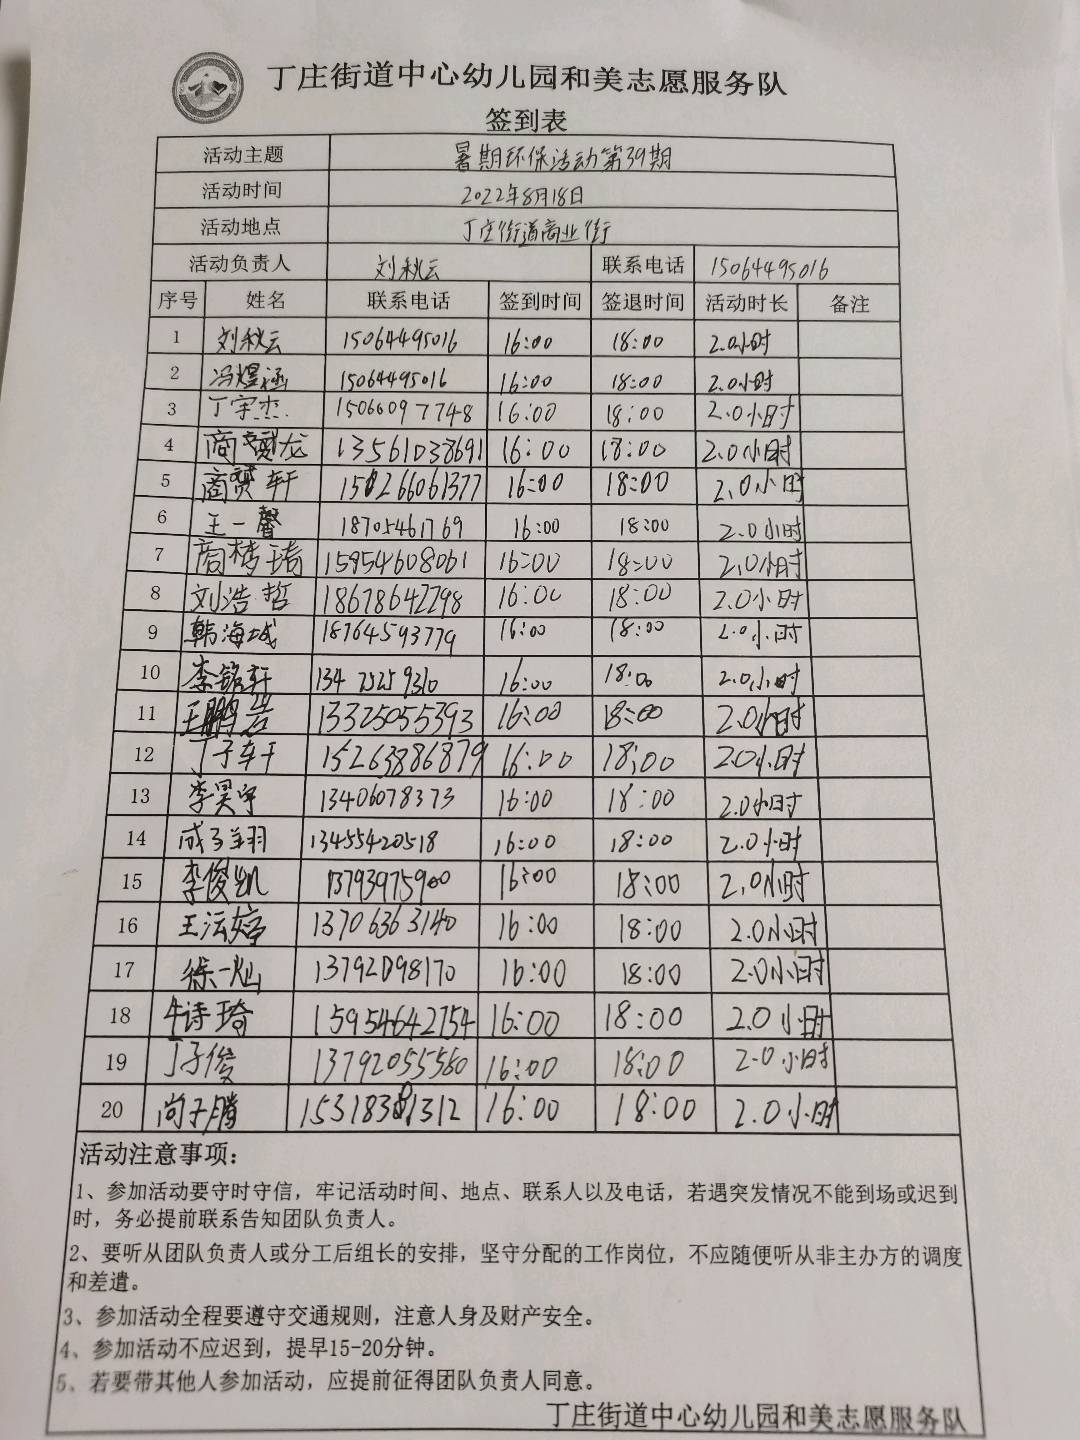 丁庄街道中心幼儿园和美志愿服务队
签到表
活动主题 暑期环保活动第39期
活动时间 2022年8月18日
活动地点 丁庄街道商业街
活动负责人 刘秋云 联系电话 15064495016
序号 姓名 联系电话 签到时间 签退时间 活动时长 备注
1 刘秋云 15064495016 16:00 18:00 2.0小时
2 冯煜涵 15064495016 16:00 18:00 2.0小时
3 丁宇杰 15066097748 16:00 18:00 2.0小时
4 商龙 13561038691 16:00 18:00 2.0小时
5 商贤轩 15266061377 16:00 18:00 2.0小时
6 王一馨 18705461769 16:00 18:00 2.0小时
7 商梦琦 15954608061 16:00 18:00 2.0小时
8 刘浩哲 18678642298 16:00 18:00 2.0小时
9 韩海城 18764593779 16:00 18:00 2.0小时
10 李铭轩 134 2525 9310 16:00 18:00 2.0小时
11 王鹏岩 13325055393 16:00 18:00 2.0小时
12 丁子轩 15263886879 16:00 18:00 2.0小时
13 李昊宇 13406078373 16:00 18:00 2.0小时
14 成子翔 13455420518 16:00 18:00 2.0小时
15 李俊凯 13793975900 16:00 18:00 2.0小时
16 王沄婷 13706363140 16:00 18:00 2.0小时
17 徐一灿 13792098170 16:00 18:00 2.0小时
18 牛诗琦 15954642754 16:00 18:00 2.0小时
19 丁子俊 13792055560 16:00 18:00 2.0小时
20 尚子腾 15318381312 16:00 18:00 2.0小时
活动注意事项：
1、参加活动要守时守信，牢记活动时间、地点、联系人以及电话，若遇突发情况不能到场或迟到
时，务必提前联系告知团队负责人。
2、要听从团队负责人或分工后组长的安排，坚守分配的工作岗位，不应随便听从非主办方的调度
和差遣。
3、参加活动全程要遵守交通规则，注意人身及财产安全。
4、参加活动不应迟到，提早15-20分钟。
5、若要带其他人参加活动，应提前征得团队负责人同意。
丁庄街道中心幼儿园和美志愿服务队